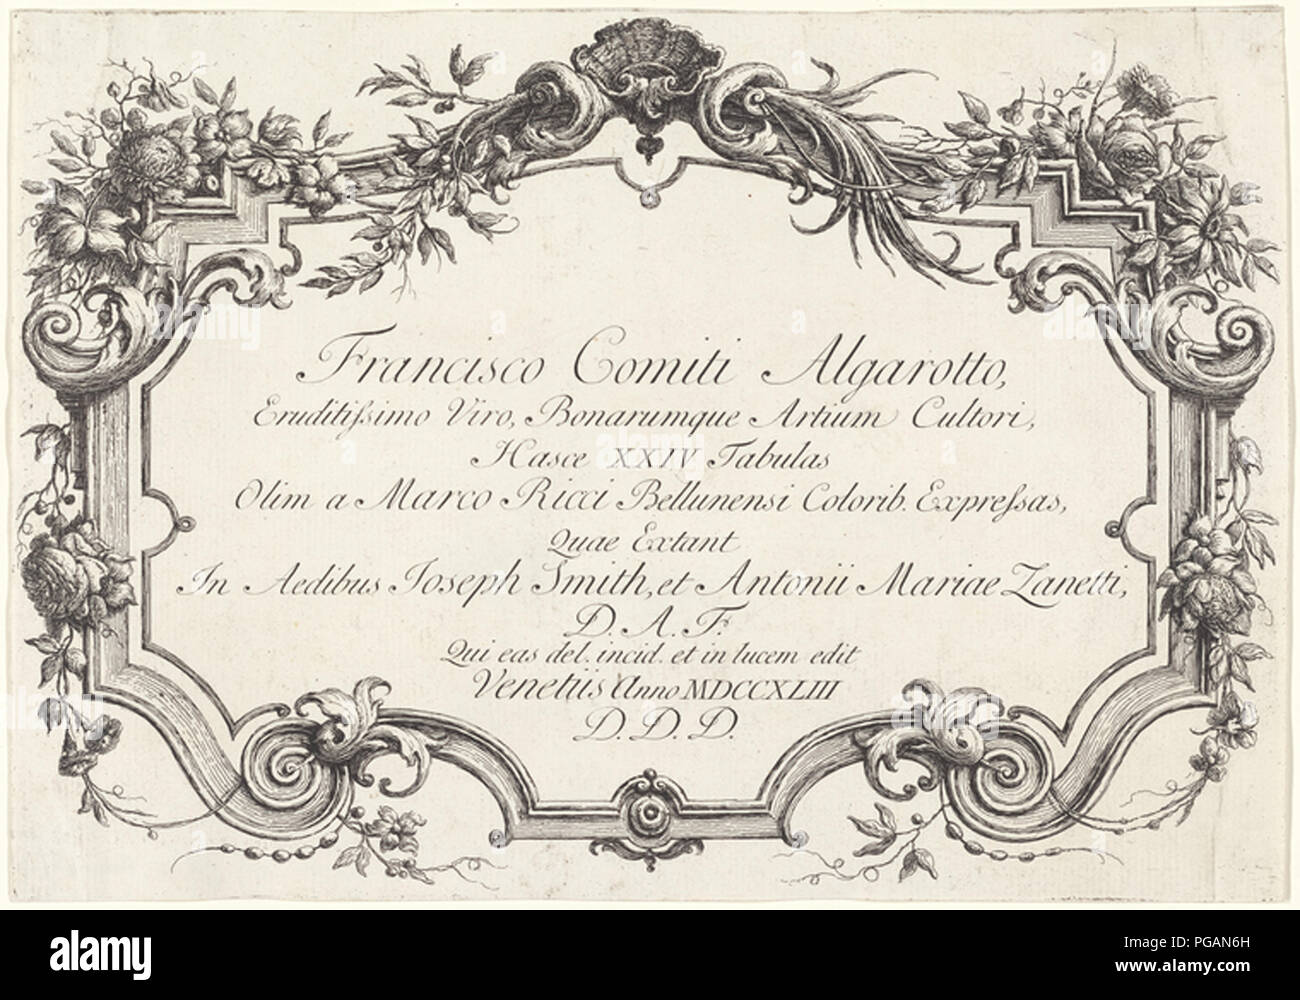 Francisco Comiti Algarotto,
Eruditiſsimo Viro, Bonarumque Artium Cultori,
Hasce XXIV Tabulas
Olim a Marco Ricci Bellunensi Colorib. Expreſsas,
Quae Extant
In Aedibus Ioseph Smith, et Antonii Mariae Zanetti,
D. A. F.
Qui eas del. incid. et in lucem edit
Venetiis Anno MDCCXLIII
D. D. D.
alamy stock photo
alamy
PGAN6H
www.alamy.com